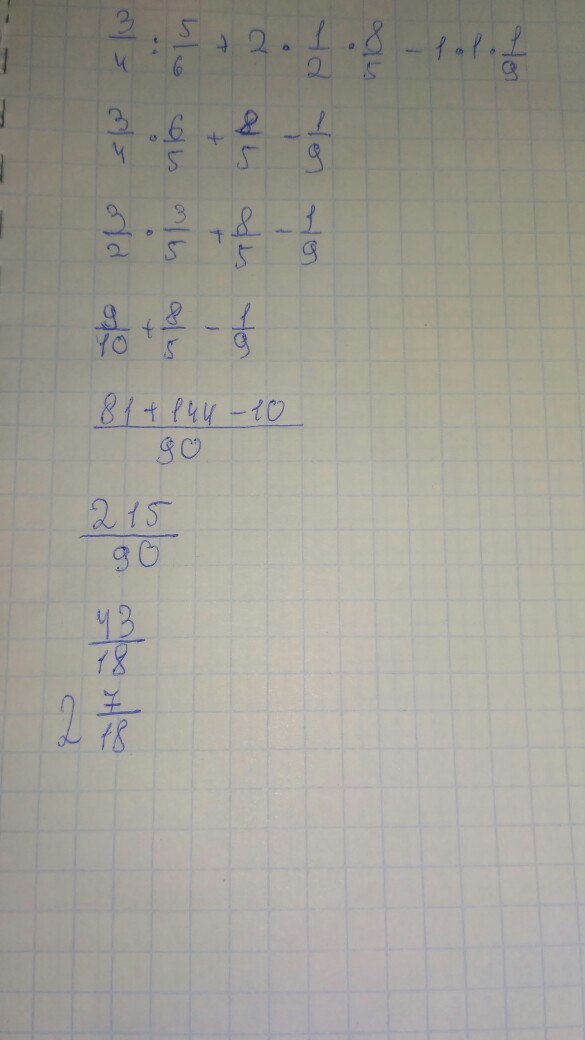 3/4 : 5/6 + 2 · 1/2 · 8/5 - 1 · 1 · 1/9
3/4 · 6/5 + 8/5 - 1/9
3/2 · 3/5 + 8/5 - 1/9
9/10 + 8/5 - 1/9
81 + 144 - 10 / 90
215/90
43/18
2 7/18